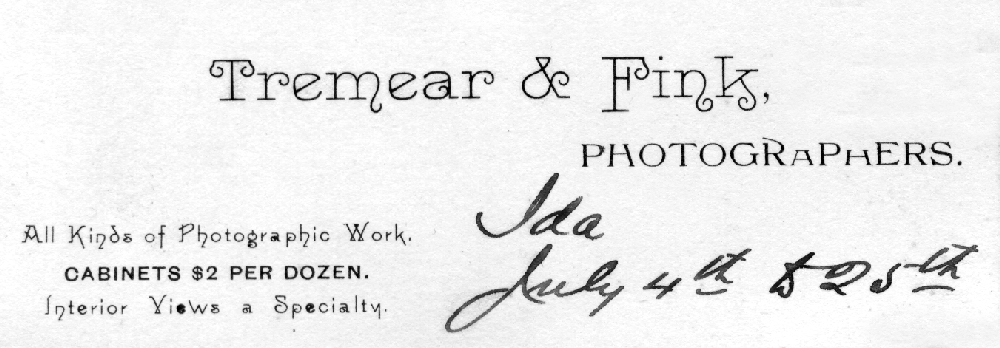 Tremear & Fink,
PHOTOGRAPHERS.
All Kinds of Photographic Work.
CABINETS $2 PER DOZEN.
Interior Views a Specialty.
Ida
July 4th to 25th